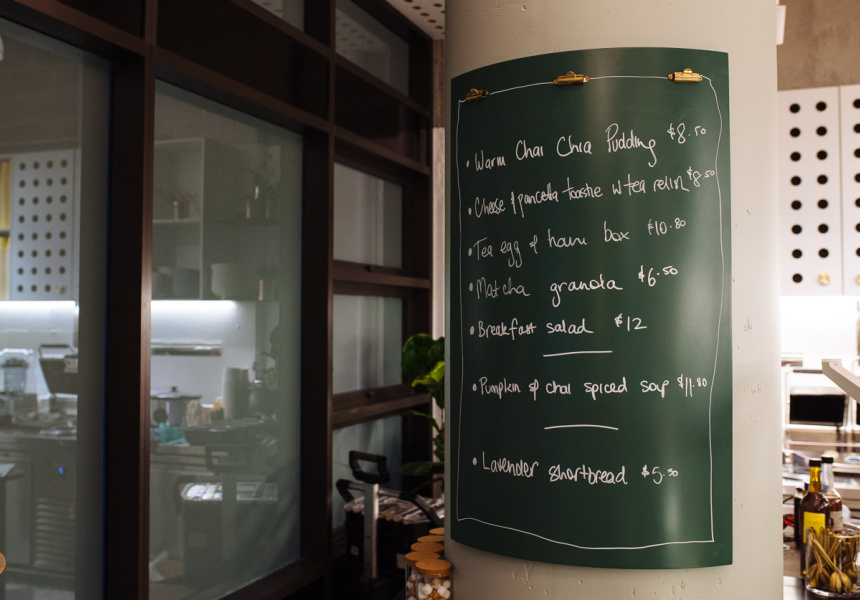 • Warm Chai Chia Pudding $8.50
• Cheese & pancetta toastie w tea relish $8.50
• Tea egg & ham box $10.80
• Matcha granola $6.50
• Breakfast salad $12
• Pumpkin & chai spiced soup $11.80
• Lavender shortbread $5.50